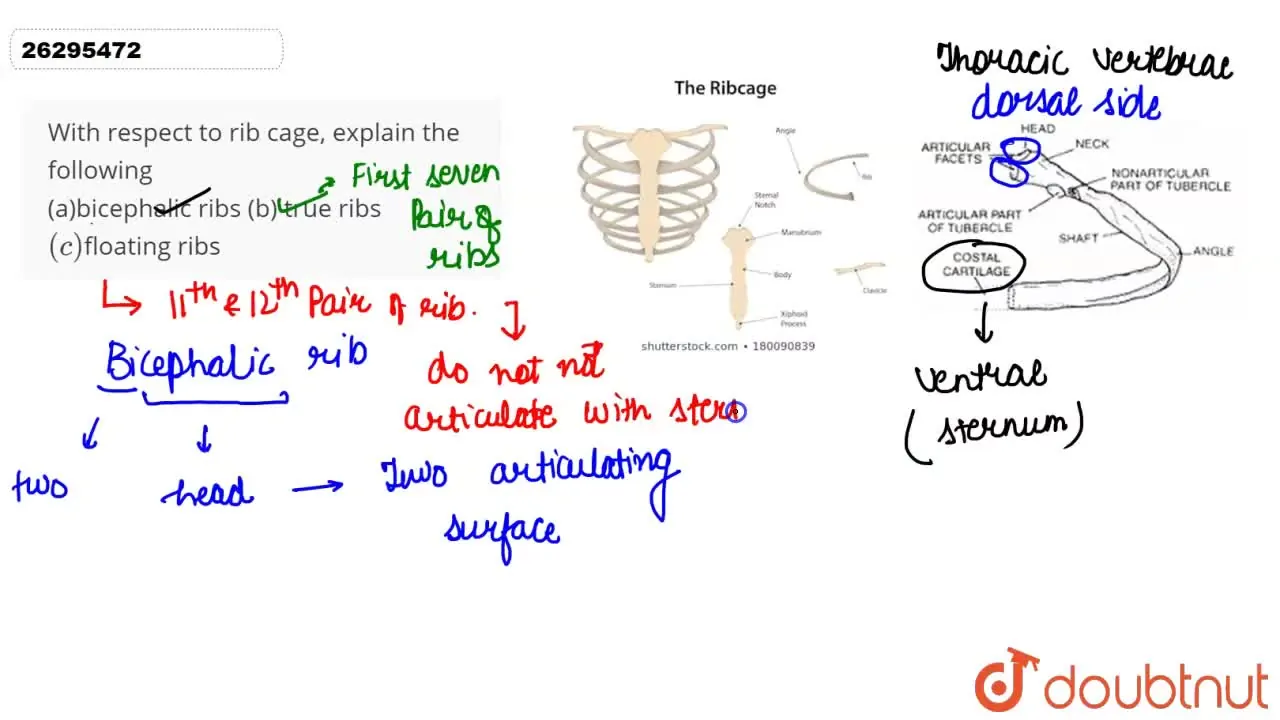 26295472
With respect to rib cage, explain the
following
(a)bicephalic ribs (b) true ribs
(c)floating ribs
First seven
Pair of
ribs
11th & 12th Pair of rib.
do not not
articulate with ster
Bicephalic rib
two
head
Two articulating
surface
The Ribcage
Angle
Rib
Sternal
Notch
Manubrium
Body
Sternum
Clavicle
Xiphoid
Process
shutterstock.com • 180090839
Thoracic vertebrae
dorsal side
HEAD
ARTICULAR
FACETS
NECK
NONARTICULAR
PART OF TUBERCLE
ARTICULAR PART
OF TUBERCLE
SHAFT
ANGLE
COSTAL
CARTILAGE
ventral
(sternum)
doubtnut